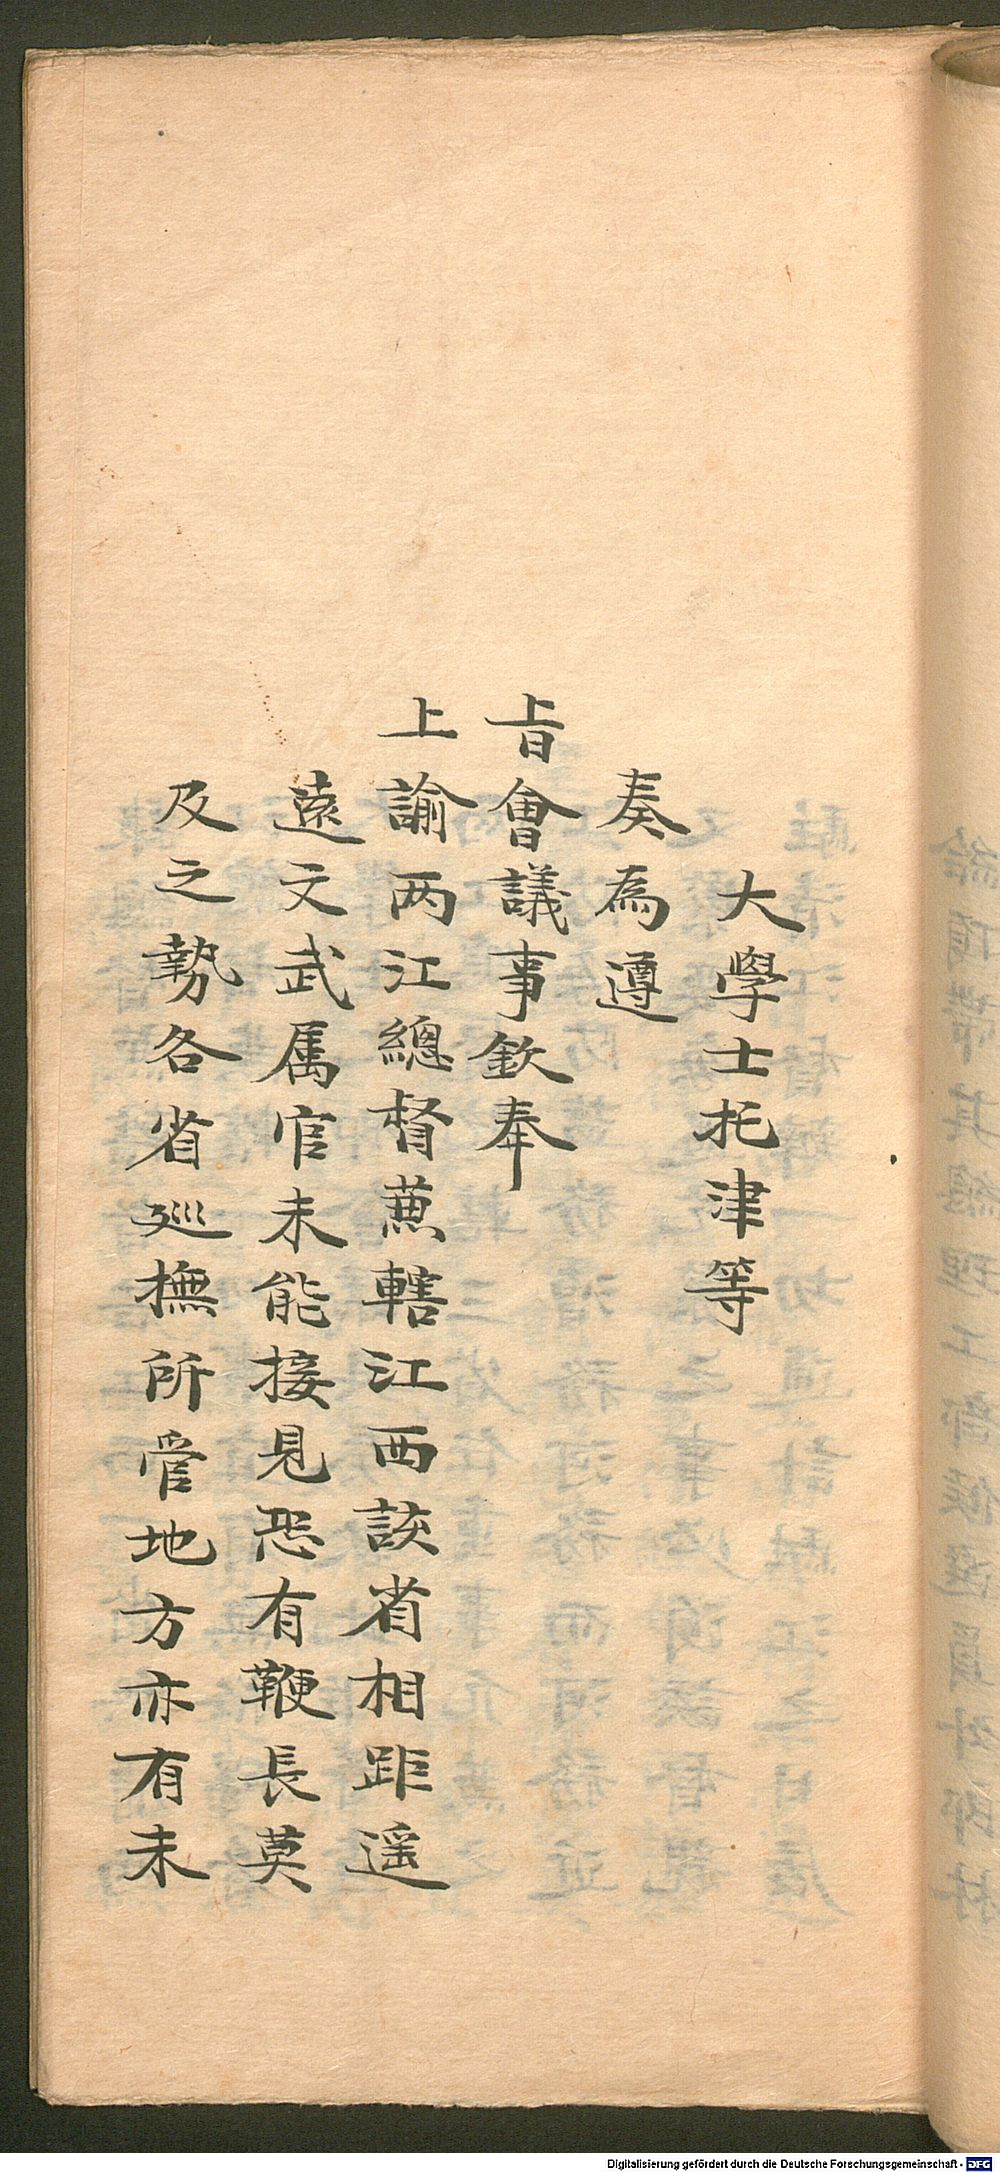 大學士托津等
奏為遵
旨會議事欽奉
上諭两江總督蕪轄江西該省相距遥
遠文武属官未能接見恐有鞭長莫
及之勢各省巡撫所管地方亦有未
Digitalisierung gefördert durch die Deutsche Forschungsgemeinschaft - DFG